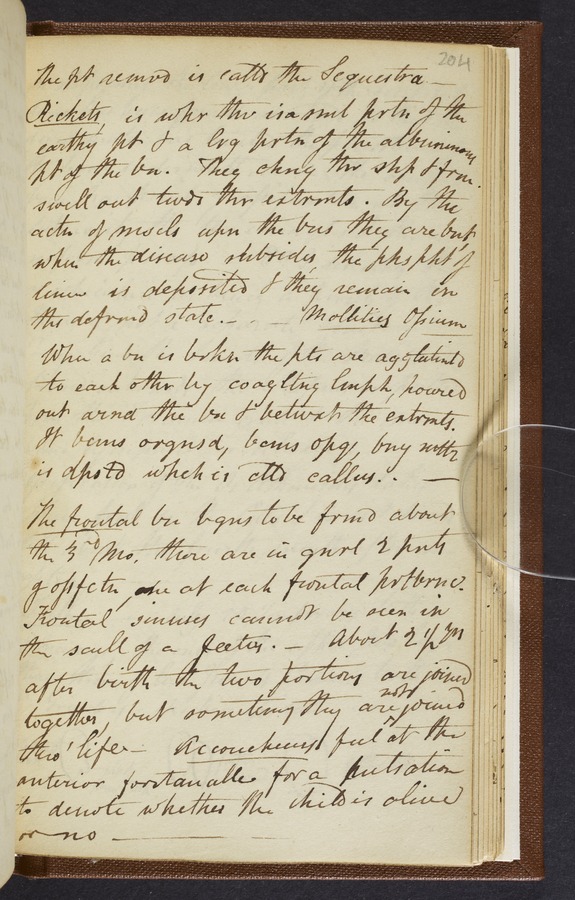 204
the pt remvd is calld the Sequestra —
Rickets, is whr thr is a sml prtn of the
earthy pt & a lrg prtn of the albuminous
pt of the bn. They chng thr shp & frm.
swell out twds thr extrmts. By the
actn of muscls upn the bns they are bnt
when the disease subsides the phspht of
lime is deposited & they remain in
ths defrmd state. — — Mollities Ossium
Whn a bn is brkn the pts are agglutintd
to each othr by coagltng lmph, poured
out arnd the bn & betwxt the extrmts.
It bcms orgnsd, bcms opq, bny mttr
is dpstd which is clld callus. . —
The frontal bn bgns to be frmd about
the 3rd Mo. there are in gnrl 2 pnts
of ossfctn, one at each frontal prtbrnc.
Frontal sinuses cannot be seen in
the scull of a feetus. — About 2 1/2 
after birth the two portions are joined
together, but sometimes they are not joined
thro' life — Accoucheurs feel at the
anterior fontanalle for a pulsation
to denote whether the child is alive
or no —